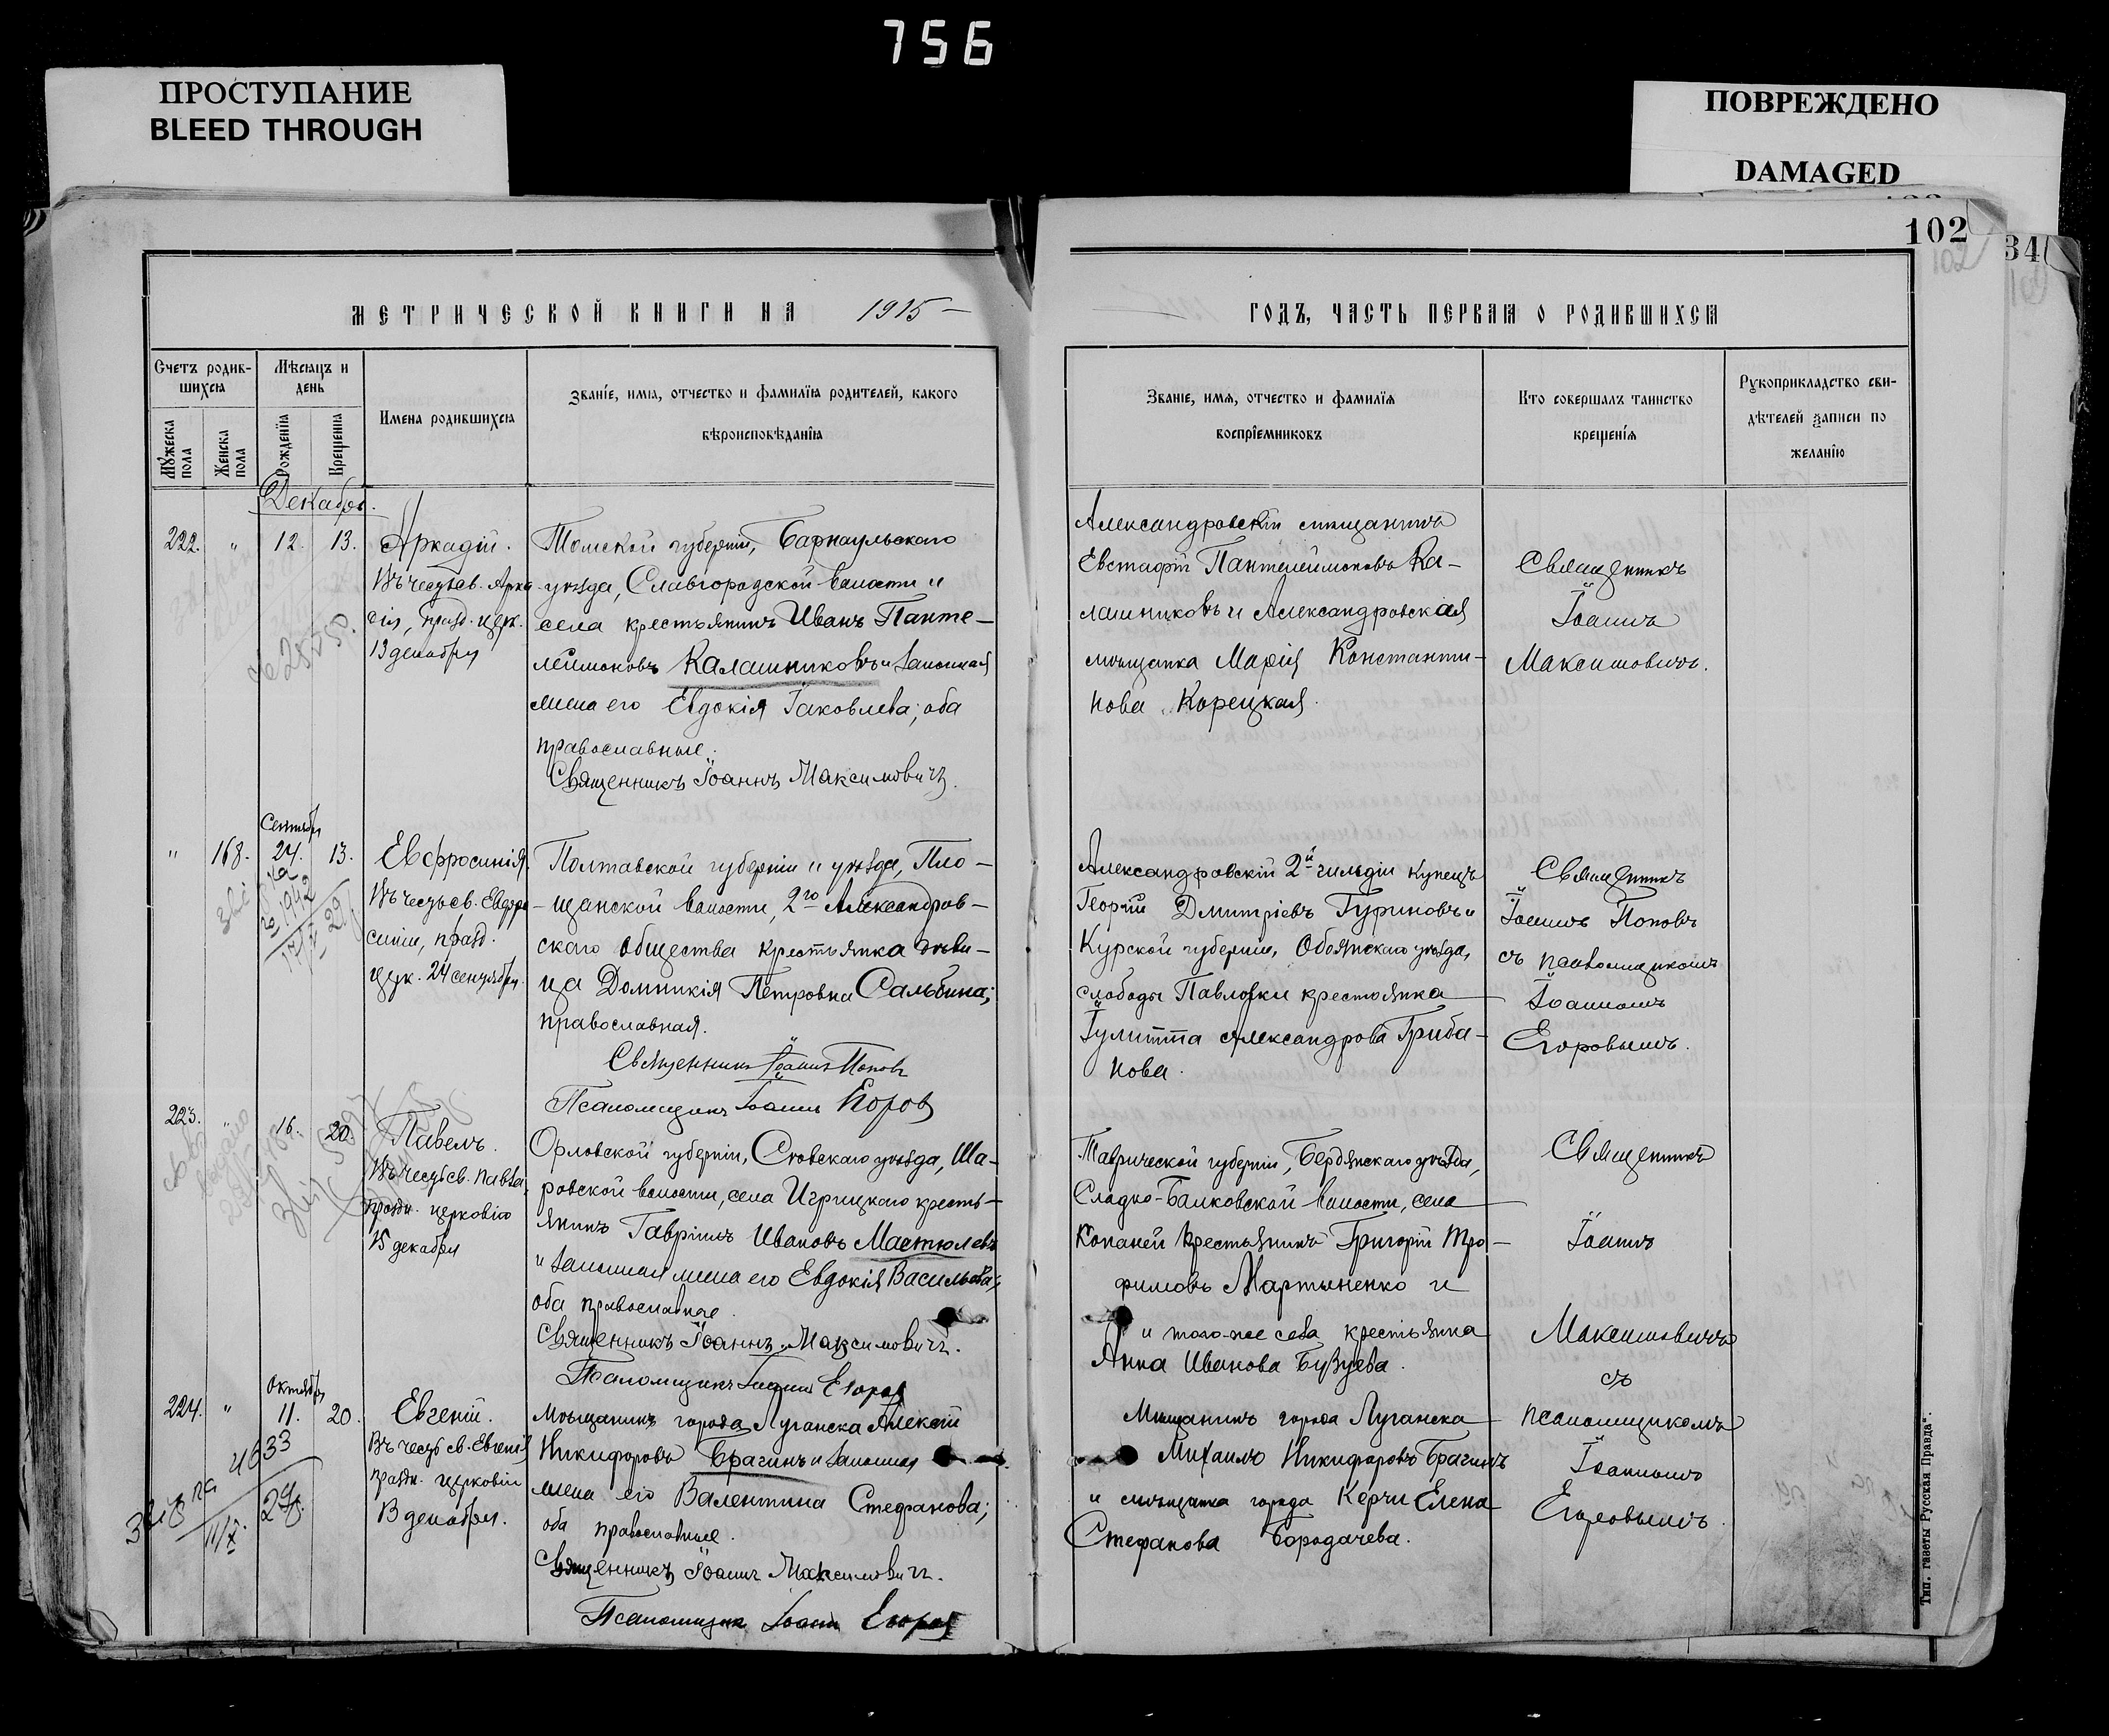 756
ПРОСТУПАНИЕ
BLEED THROUGH
ПОВРЕЖДЕНО
DAMAGED
102
34
МЕТРИЧЕСКОЙ КНИГИ НА 1915
Счетъ родившихся
Мѣсяцъ и день
Мужеска пола
Женска пола
Рожденїя
Крещенїя
Имена родившихся
Званїе, имя, отчество и фамилїя родителей, какого
вѣроисповѣданїя
Декабрь.
222. " 12. 13.
Аркадій.
Въ честь св. Арка
дія, празд. церк.
13 декабря
Томской губерніи, Барнаульскаго
уѣзда, Славгородской волости и
села крестьянинъ Иванъ Панте-
леимоновъ Калашниковъ и законная
жена его Евдокія Іаковлева; оба
православные.
Священникъ Іоаннъ Максимовичъ.
Сентябрь
" 168. 24. 13.
Евфросинія.
Въ честь св. Евфро
синіи, празд.
церк. 24 сентября.
Полтавской губерніи и уѣзда, Пло-
щанской волости, 2го Александров-
скаго общества крестьянка дѣви-
ца Домникія Петровна Сальбина;
православная.
Священникъ Іоаннъ Поповъ
Псаломщикъ Іоаннъ Егоровъ
223. " 16. 20.
Павелъ.
Въ честь св. Павла,
праздн. церковію
15 декабря
Орловской губерніи, Сѣвскаго уѣзда, Ша-
ровской волости, села Игрицкаго кресть-
янинъ Гавріилъ Ивановъ Мастюлевъ
и законная жена его Евдокія Васильева;
оба православные.
Священникъ Іоаннъ Максимовичъ.
Псаломщикъ Іоаннъ Егоровъ
Октябрь
224. " 11. 20.
Евгеній.
Въ честь св. Евгенія
праздн. церковію
13 декабря.
4633
Мѣщанинъ города Луганска Алексій
Никифоровъ Брагинъ и законная
жена его Валентина Стефанова;
оба православные.
Священникъ Іоаннъ Максимовичъ.
Псаломщикъ Іоаннъ Егоровъ
ГОДЪ, ЧАСТЬ ПЕРВАЯ О РОДИВШИХСЯ
Званїе, имя, отчество и фамилїя
воспрїемниковъ
Кто совершалъ таинство
крещенїя
Рукоприкладство сви-
дѣтелей записи по
желанїю
Александровскій мѣщанинъ
Евстафій Пантелеимоновъ Ка-
лашниковъ и Александровская
мѣщанка Марія Константи-
нова Корецкая.
Священникъ
Іоаннъ
Максимовичъ.
Александровскій 2й гильдіи купецъ
Георгій Дмитріевъ Гуриновъ и
Курской губерніи, Обоянскаго уѣзда,
слободы Павловки крестьянка
Іулитта Александрова Гриба-
нова.
Священникъ
Іоаннъ Поповъ
съ псаломщикомъ
Іоанномъ
Егоровымъ.
Таврической губерніи, Бердянскаго уѣзда,
Сладко-Балковской волости, села
Копаней крестьянинъ Григорій Тро-
фимовъ Мартыненко и
и того-же села крестьянка
Анна Иванова Бузуева.
Священникъ
Іоаннъ
Максимовичъ
съ
псаломщикомъ
Іоанномъ
Егоровымъ.
Мѣщанинъ города Луганска
Михаилъ Никифоровъ Брагинъ
и мѣщанка города Керчи Елена
Стефанова Бородачева.
Тип. газеты „Русская Правда".